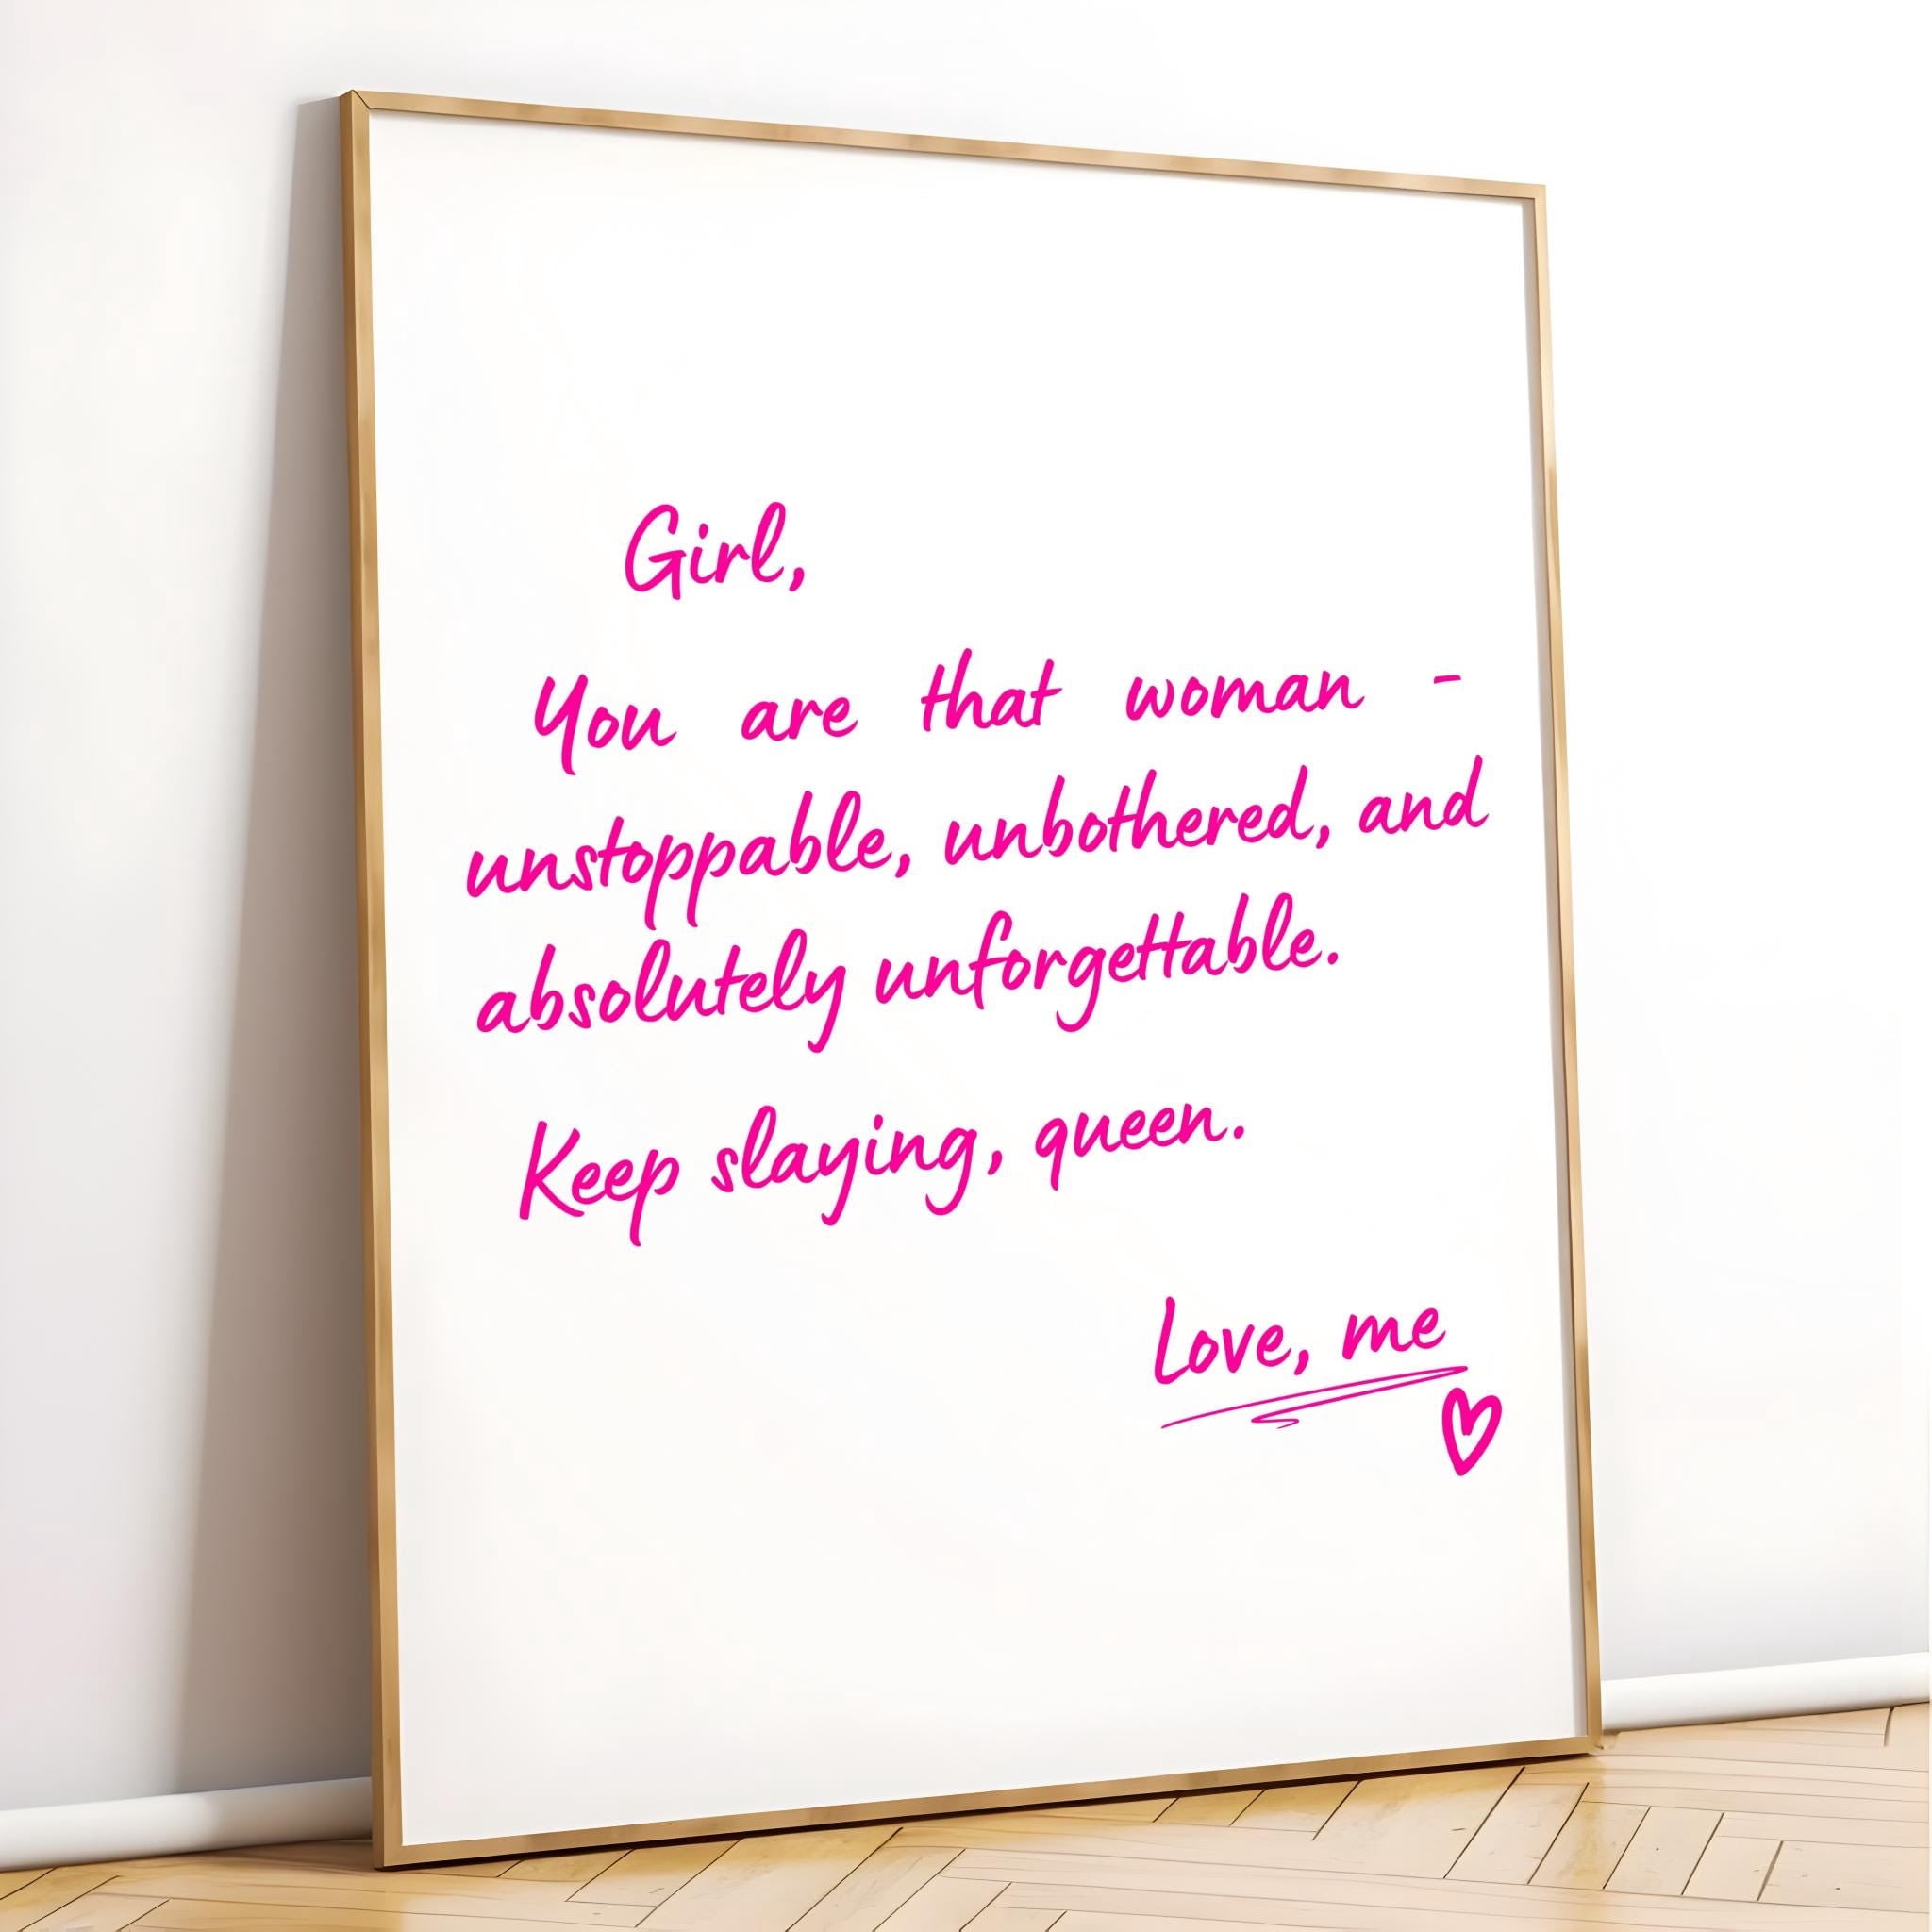 Girl,
You are that woman -
unstoppable, unbothered, and
absolutely unforgettable.
Keep slaying, queen.
Love, me